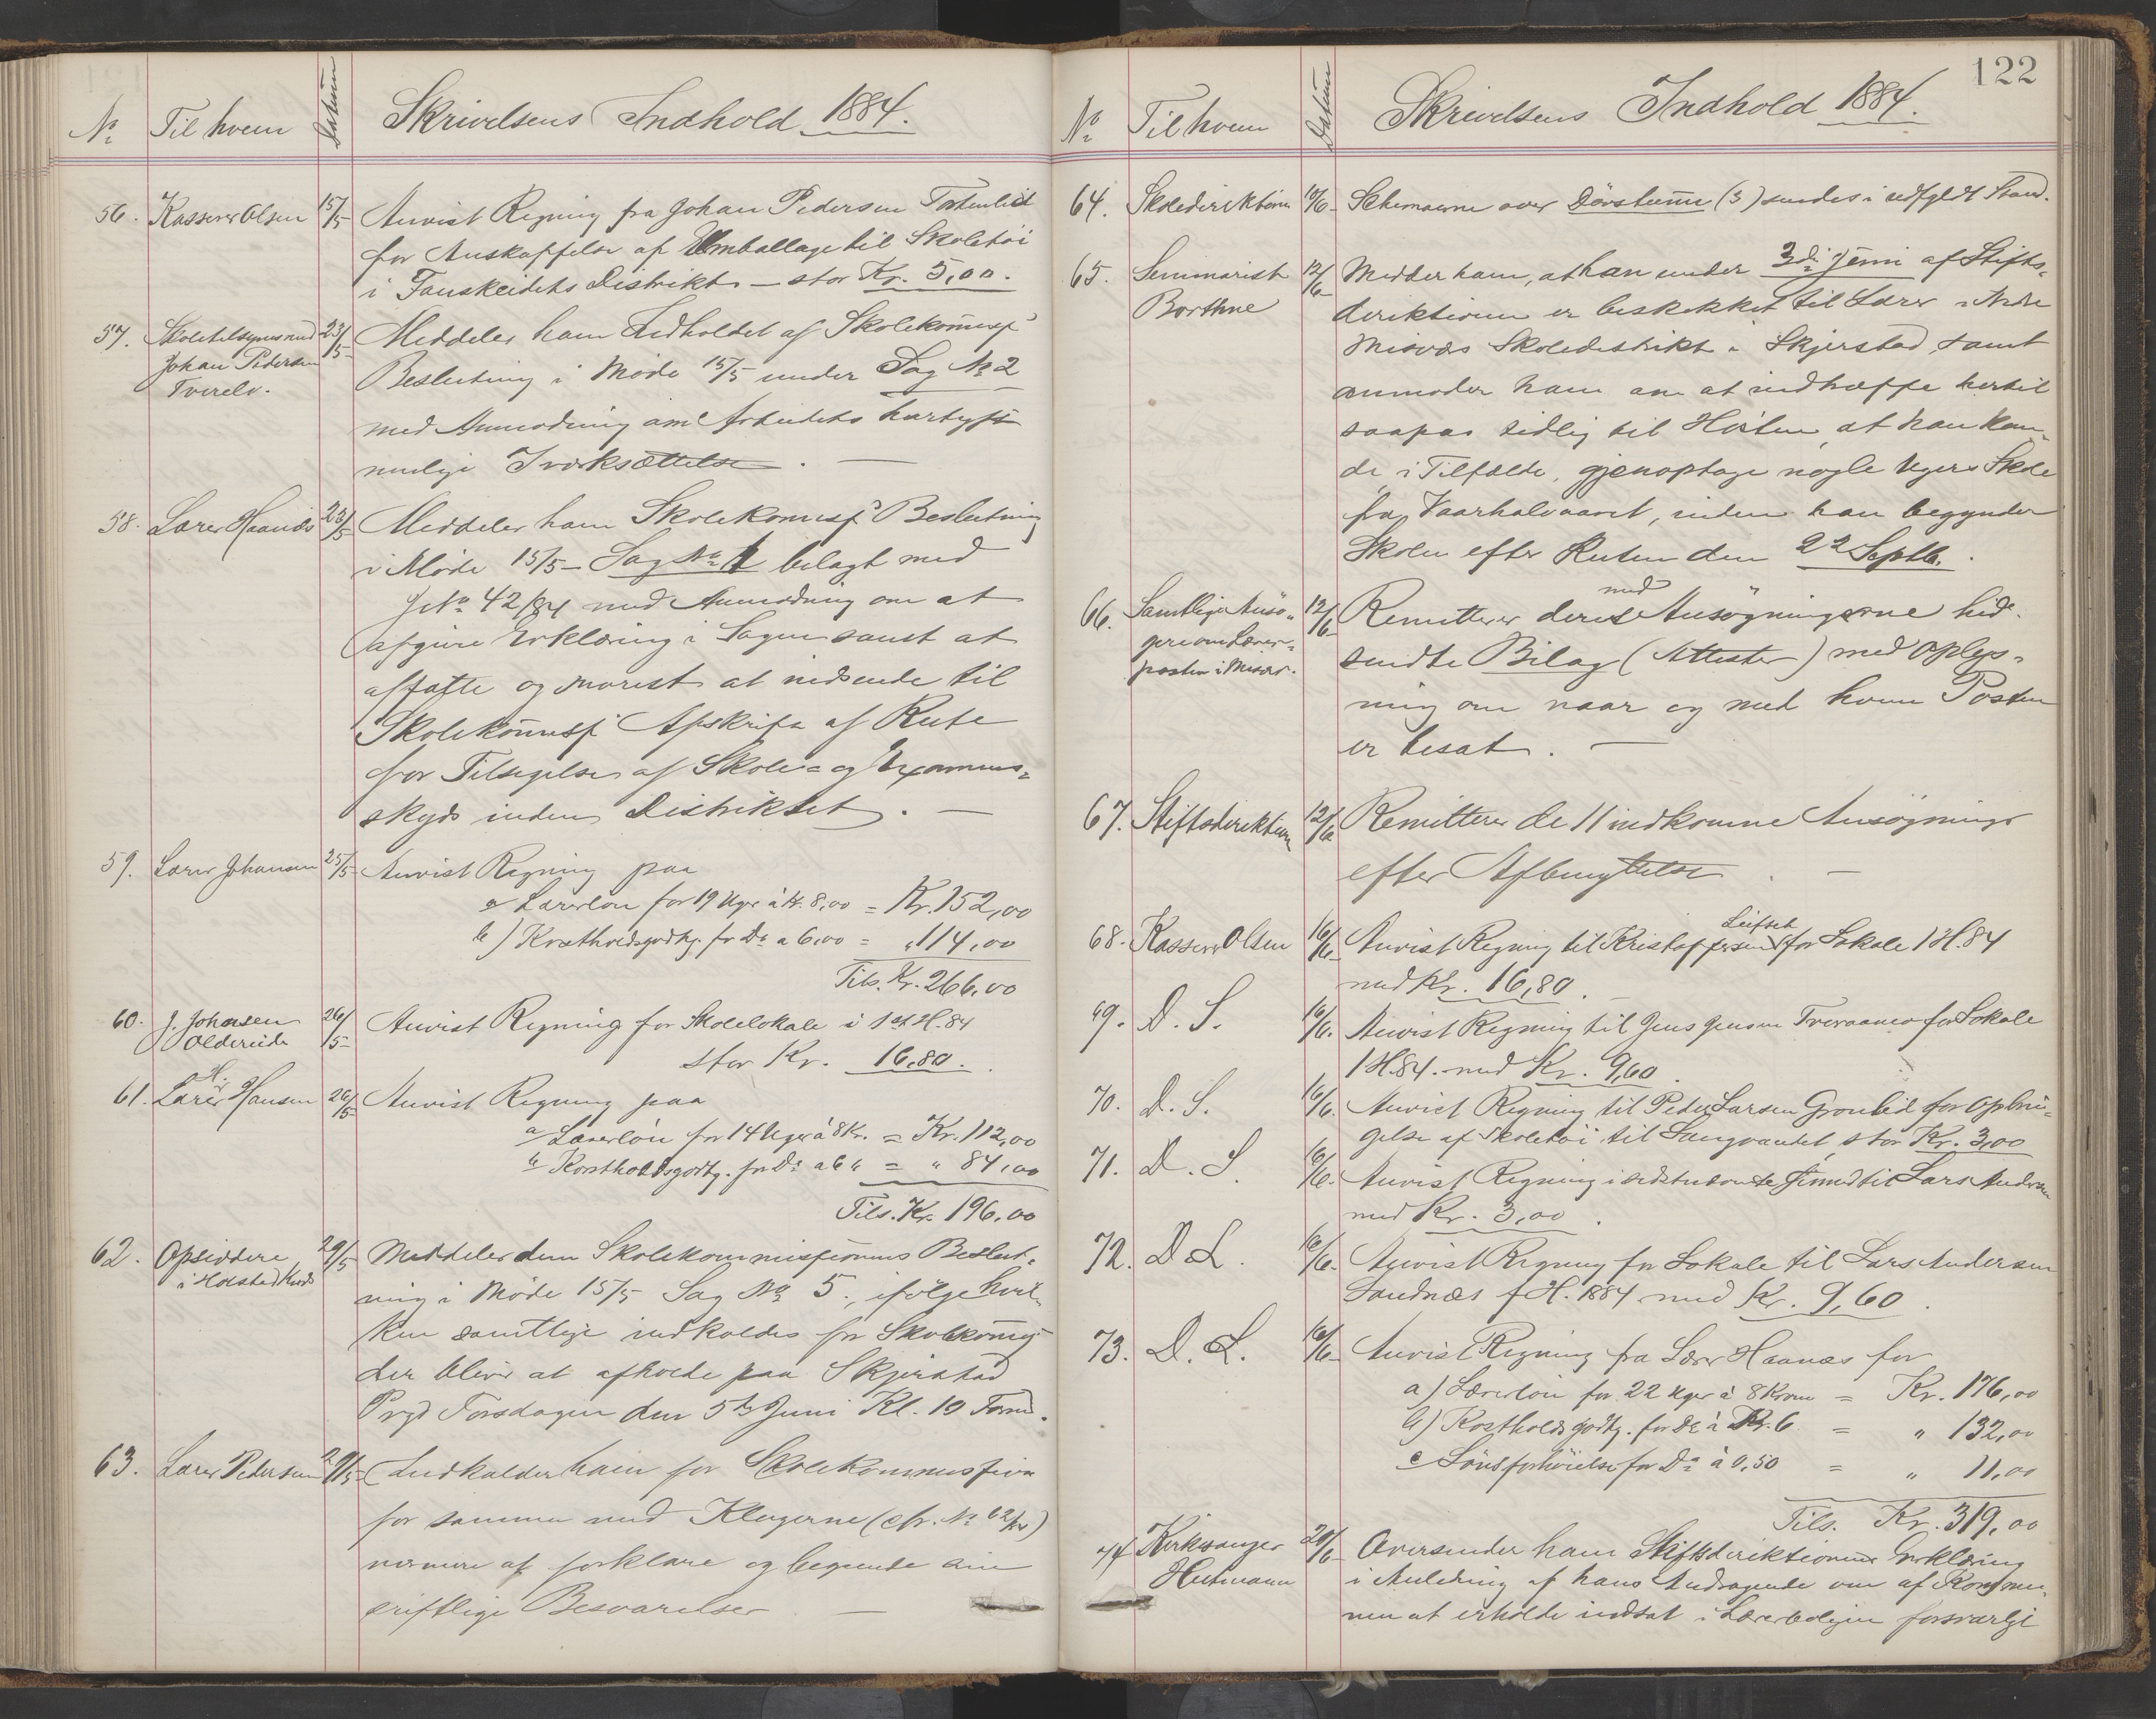 No Til hvem Datum Skrivelsens Indhold 1884.
56. Kasserer Olsen 15/5 Anvist Regning fra Johan Pedersen
for Anskaffelse af Emballage til Skoletøi
i Fauskeidets Distrikt - stor Kr. 5,00.
57. Skoletilsynsmand 23/5 Meddeler ham Indholdet af Skolekommisſ
Johan Pedersen
Tverelv.
Beslutning i Møde 15/5 under Sag No 2
med Anmodning om Arbeidets
mulige Iværksættelse. —
58. Lærer Haanæs 23/5 Meddeler ham Skolekommisſs Beslutning
i Møde 15/5 - Sag No 1 bilagt med
JNo 42/84 med Anmodning om at
afgive Erklæring i Sagen samt at
affatte og snarest at indsende til
Skolekommisſ Afskrift af Rute
for Tilsigelse af Skole= og Examens=
skyds inden Distriktet. —
59. Lærer Johansen 25/5 Anvist Regning paa
a) Lærerløn for 19 Uger à Kr. 8,00 = Kr. 152,00
b) Kostholdsgodtg. for Do a 6,00 = " 114,00
Tils. Kr. 266,00
60. J. Johnsen 26/5 Anvist Regning for Skolelokale i 1ste H. 84
Oldereide
stor Kr. 16,80.
61. Lærer H. Hansen 26/5 Anvist Regning paa
a) Lærerløn for 14 Uger à 8 Kr. = Kr. 112,00
b Kostholdsgodtg. for Do a 6 " = " 84,00
Tils. Kr. 196,00
62. Opsiddere 29/5 Meddeler dem Skolekommisſionens Beslut-
i Holstad Kreds
ning i Møde 15/5 Sag No 5., ifølge hvil-
ken samtlige indkaldes for Skolekommisſ
der bliver at afholde paa Skjerstad
Prgd Torsdagen den 5te Juni Kl. 10 Form.
63. Lærer Pedersen 29/5 Indkalder ham for Skolekommisſion
for sammen med Klagerne (cfr. No 62/84)
nærmere at forklare og begrunde sin
skriftlige Besvarelse —
122
No Til hvem Datum Skrivelsens Indhold 1884.
64. Skoledirektionen 10/6 Schemaerne over Døvstumme (3) sendes i udfyldt Stand.
65. Seminarist 12/6 Medder ham, at han under 3die Juni af Stifts-
Borthne
direktionen er beskikket til Lærer i Nedre
Misvær Skoledistrikt i Skjerstad, samt
anmoder ham om at indtræffe hertil
saapas tidlig til Høsten, at han kun-
de, i Tilfælde, gjenoptage nogle Ugers Skole
fra Vaarhalvaaret, inden han begynder
Skolen efter Ruten den 22 Septb.
66. Samtlige Ansø- 12/6 Remitterer deres med Ansøgningerne hid-
gere om Lærer-
posten i Misvær.
sendte Bilag (Attester) med Oplys-
ning om naar og med hvem Posten
er besat. —
67. Stiftsdirektionen 12/6 Remitterer de 11 indkomne Ansøgninger
efter Afbenyttelse. —
68. Kasserer Olsen 16/6 Anvist Regning til Kristoffersen Leifset for Lokale 1 H. 84
med Kr. 16,80.
69. D. S. 16/6. Anvist Regning til Jens Jensen Tveraamo for Lokale
1 H. 84. med Kr. 9,60.
70. D. S. 16/6. Anvist Regning til Peder Larsen Grønlid for Opbrin-
gelse af Skoletøi til Langvandet, stor Kr. 3,00
71. D. S. 16/6. Anvist Regning i sidstnævnte Øiemed til Lars Andersen
med Kr. 3,00.
72. D. S. 16/6. Anvist Regning for Lokale til Lars Andersen
Sandnæs f H. 1884 med Kr. 9,60.
73. D. S. 16/6. Anvist Regning fra Lærer Haanæs for
a) Lærerløn for 22 Uger à 8 Kroner = Kr. 176,00
b) Kostholdsgodtg. for Do à Kr. 6 = " 132,00
c Lønsforhøielse for Do à 0,50 = " 11,00
Tils. Kr. 319,00
74 Kirkesanger 20/6 Oversender ham Stiftsdirektionens Erklæring
Hutmann
i Anledning af hans Andragende om af Kommu-
nen at erholde indsat i Lærerboligen forsvarlige